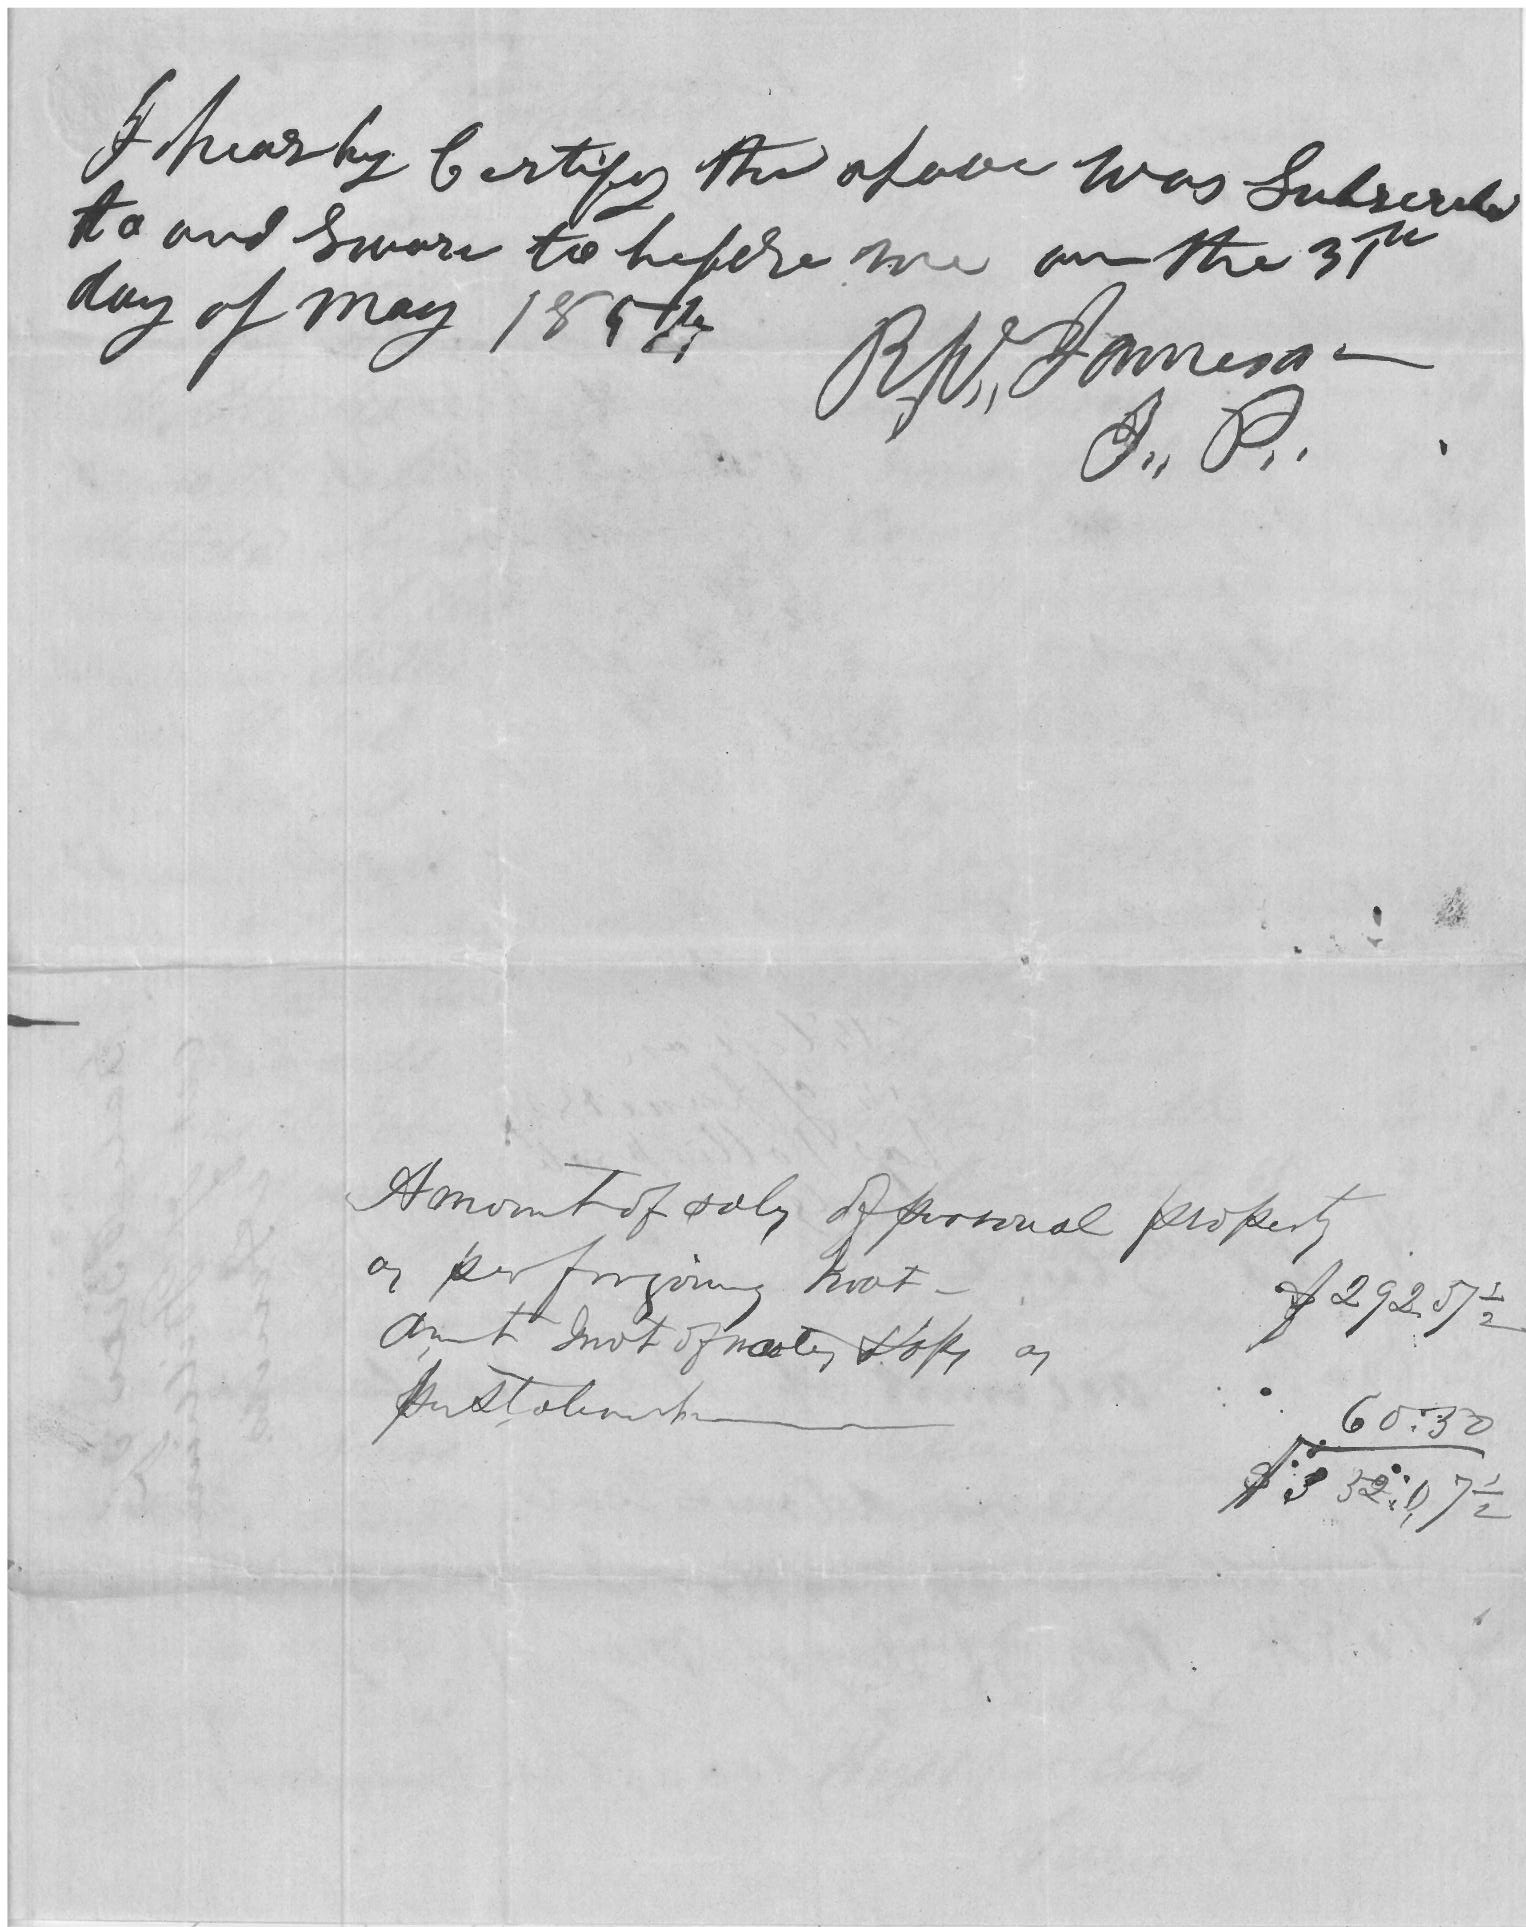 I hearby Certify the above was Subscribd
to and Sworn to before me on the 31th
day of May 185
R. W. Jameson
J. P.
Amount of sale of personal property
as per forgoing
$292 57½
Amt of notes &
per statement
60.30
$352.07½